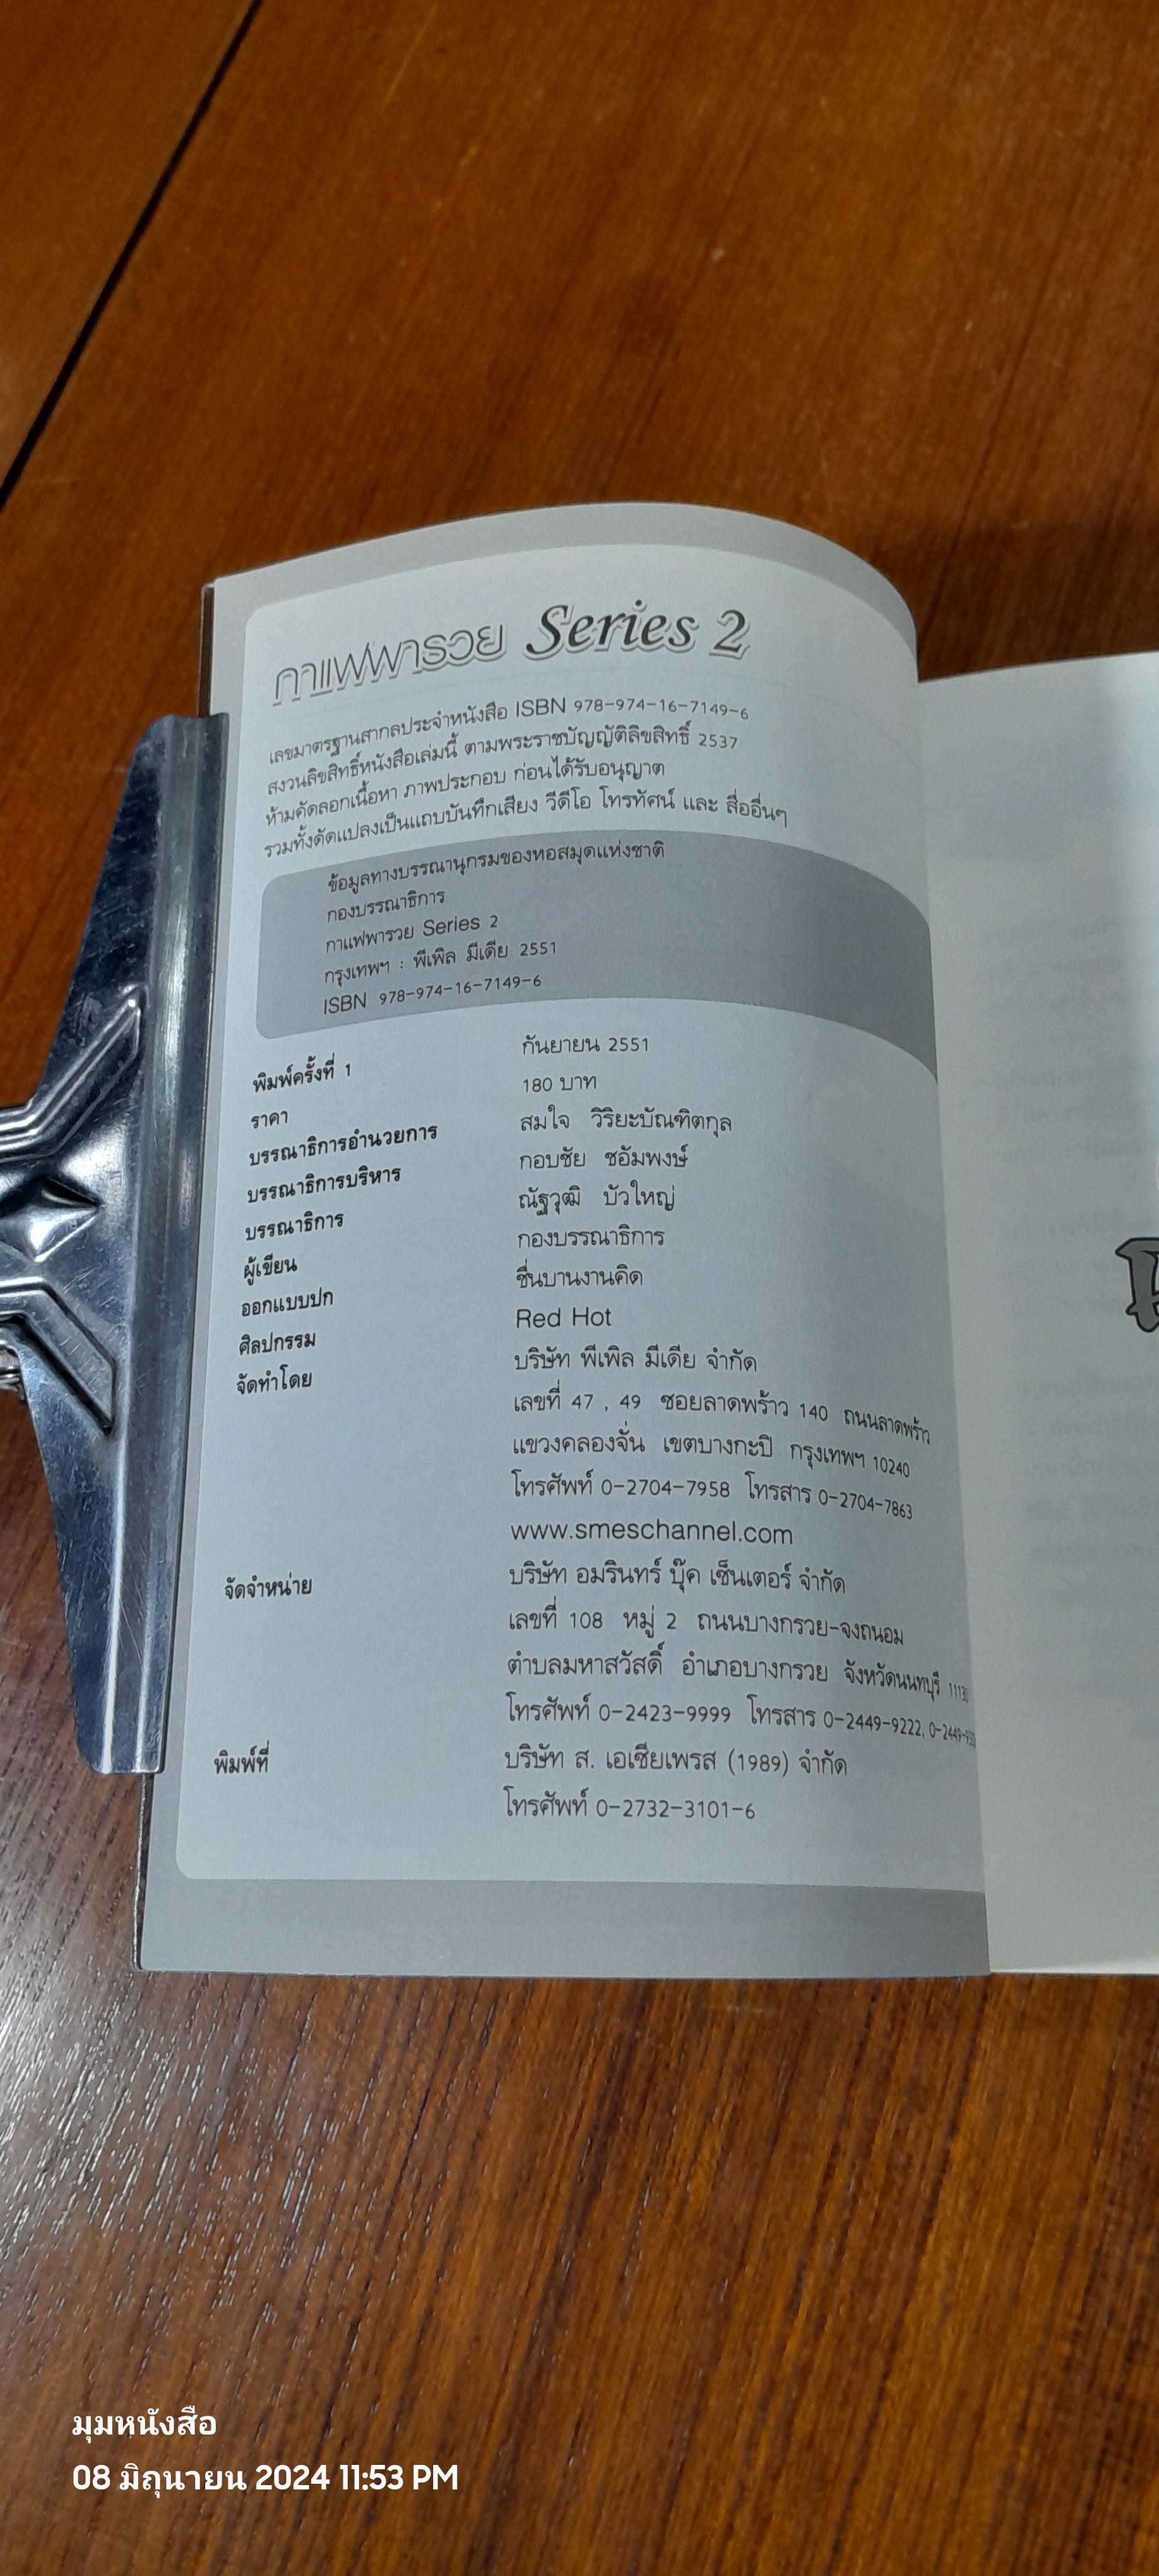 กาแฟพารวย Series 2
เลขมาตรฐานสากลประจำหนังสือ ISBN 978-974-16-7149-6
สงวนลิขสิทธิ์หนังสือเล่มนี้ ตามพระราชบัญญัติลิขสิทธิ์ 2537
ห้ามคัดลอกเนื้อหา ภาพประกอบ ก่อนได้รับอนุญาต
รวมทั้งดัดแปลงเป็นแถบบันทึกเสียง วีดีโอ โทรทัศน์ และ สื่ออื่นๆ
ข้อมูลทางบรรณานุกรมของหอสมุดแห่งชาติ
กองบรรณาธิการ
กาแฟพารวย Series 2
กรุงเทพฯ : พีเพิล มีเดีย 2551
ISBN 978-974-16-7149-6
พิมพ์ครั้งที่ 1 กันยายน 2551
ราคา 180 บาท
บรรณาธิการอำนวยการ สมใจ วิริยะบัณฑิตกุล
บรรณาธิการบริหาร กอบชัย ชอัมพงษ์
บรรณาธิการ ณัฐวุฒิ บัวใหญ่
ผู้เขียน กองบรรณาธิการ
ออกแบบปก ชื่นบานงานคิด
ศิลปกรรม Red Hot
จัดทำโดย บริษัท พีเพิล มีเดีย จำกัด
เลขที่ 47 , 49 ซอยลาดพร้าว 140 ถนนลาดพร้าว
แขวงคลองจั่น เขตบางกะปิ กรุงเทพฯ 10240
โทรศัพท์ 0-2704-7958 โทรสาร 0-2704-7863
www.smeschannel.com
จัดจำหน่าย บริษัท อมรินทร์ บุ๊ค เซ็นเตอร์ จำกัด
เลขที่ 108 หมู่ 2 ถนนบางกรวย-จงถนอม
ตำบลมหาสวัสดิ์ อำเภอบางกรวย จังหวัดนนทบุรี 11130
โทรศัพท์ 0-2423-9999 โทรสาร 0-2449-9222,
พิมพ์ที่ บริษัท ส. เอเชียเพรส (1989) จำกัด
โทรศัพท์ 0-2732-3101-6
มุมหนังสือ
08 มิถุนายน 2024 11:53 PM